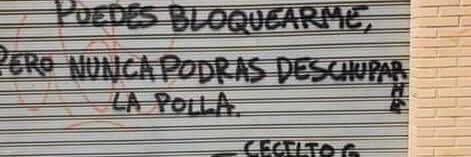 PUEDES BLOQUEARME,
PERO NUNCA PODRAS DESCHUPARME
LA POLLA.
— CECILIO G